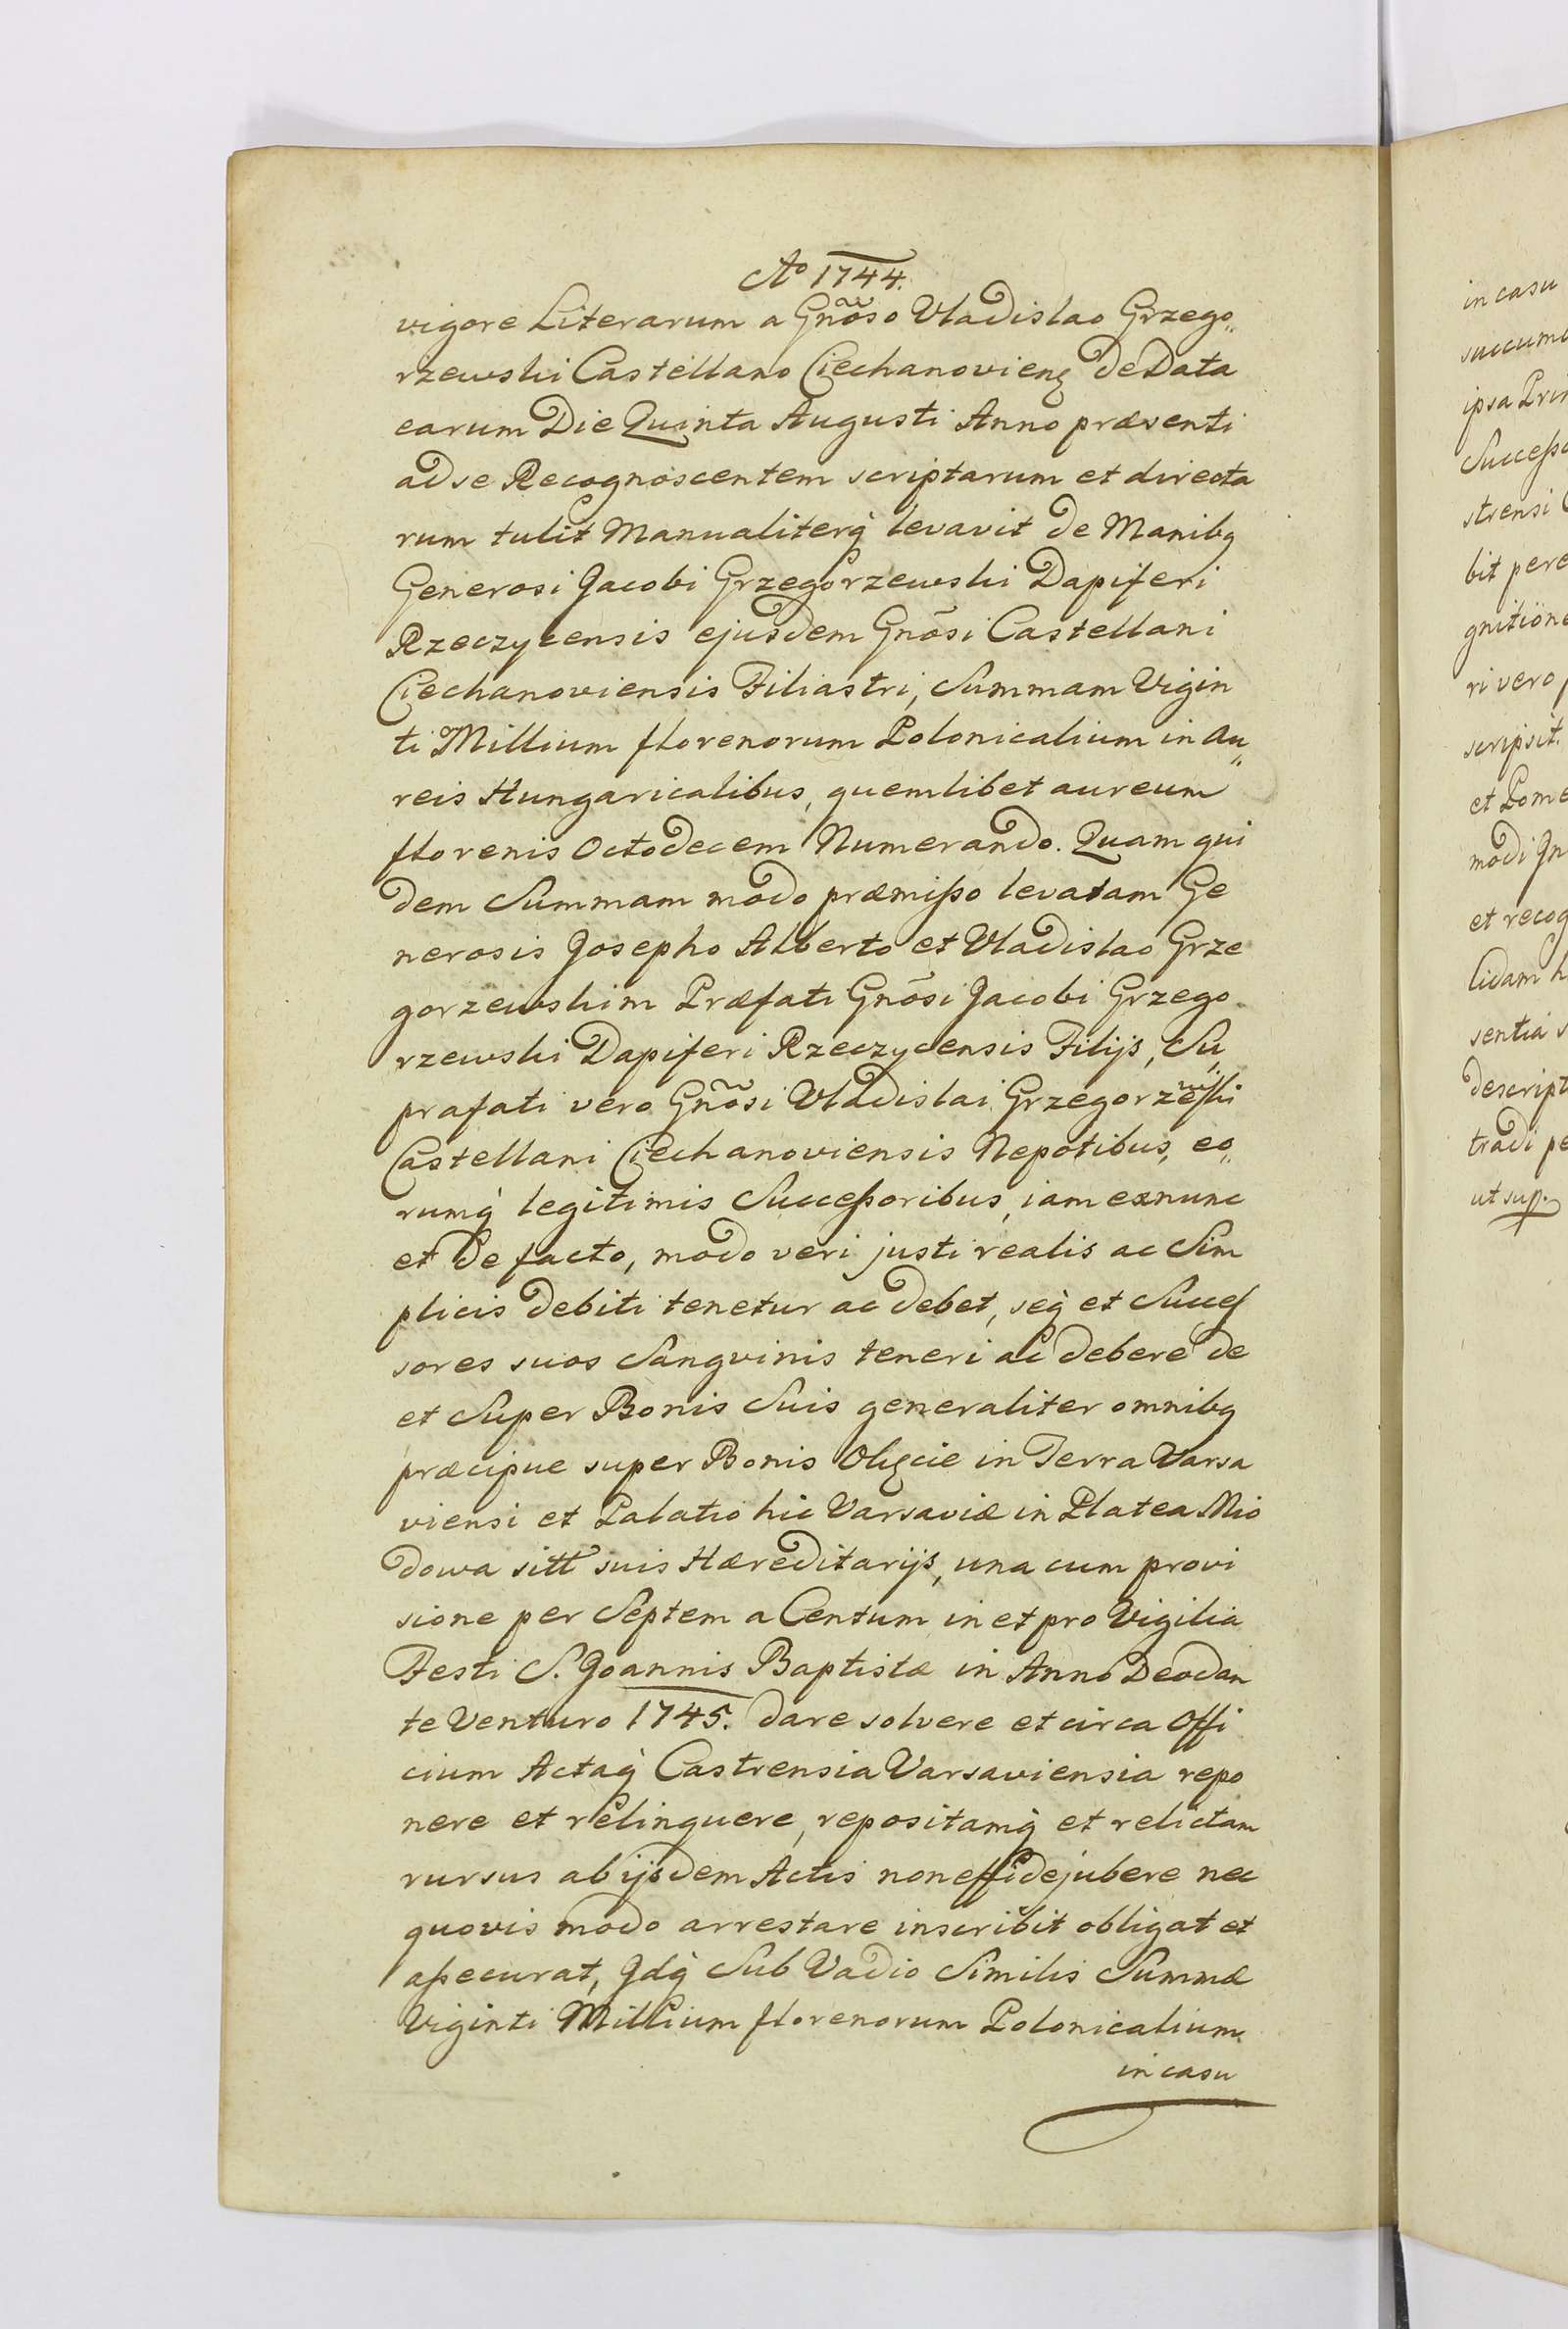 Ao 1744.
vigore Literarum a Gnõso Vladislao Grzego„
rzewski Castellano Ciechanovienȝ de Data
earum Die Quinta Augusti Anno præsenti
ad se Recognoscentem scriptarum et directa
rum tulit Manualiterq̀ levavit de Manibq
Generosi Jacobi Grzegorzewski Dapiferi
Rzeczycensis ejusdem Gnõsi Castellani
Ciechanoviensis Filiastri, Summam Vigin
ti Millium florenorum Polonicalium in Au„
reis Hungaricalibus, quemlibet aureum
florenis Octodecem Numerando. Quam qui
dem Summam modo præmisso levatam Ge
nerosis Josepho Alberto et Vladislao Grze
gorzewskim Præfati Gnõsi Jacobi Grzego
rzewski Dapiferi Rzeczycensis Filijs, Su„
prafati vero Gnõsi Vladislai Grzegorzewski
Castellani Ciechanoviensis Nepotibus, eo„
rumq̀ legitimis Successoribus, iam exnunc
et de facto, modo veri justi realis ac Sim
plicis debiti tenetur ac debet, seq̀ et Succes
sores suos Sangvinis teneri ac debere de
et Super Bonis Suis generaliter omnibq
præcipue super Bonis Olęcie in Terra Varsa
viensi et Palatio hic Varsaviæ in Platea Mio
dowa sitt suis Hæreditarijs, una cum provi
sione per Septem a Centum in et pro Vigilia
Festi S. Joannis Baptistæ in Anno Deo dan
te Venturo 1745. dare solvere et circa Offi
cium Actaq̀ Castrensia Varsaviensia repo
nere et relinquere, repositamq̀ et relictam
rursus ab ijsdem Actis non effidejubere nec
quovis modo arrestare inscribit obligat et
assecurat, Jdq̀ Sub Vadio Similis Summæ
Viginti Millium florenorum Polonicalium
in casu
in casu
ipsa
strensi
bit
ri vero
scripsit.
et
modi
et
descript
tradi
ut sup.